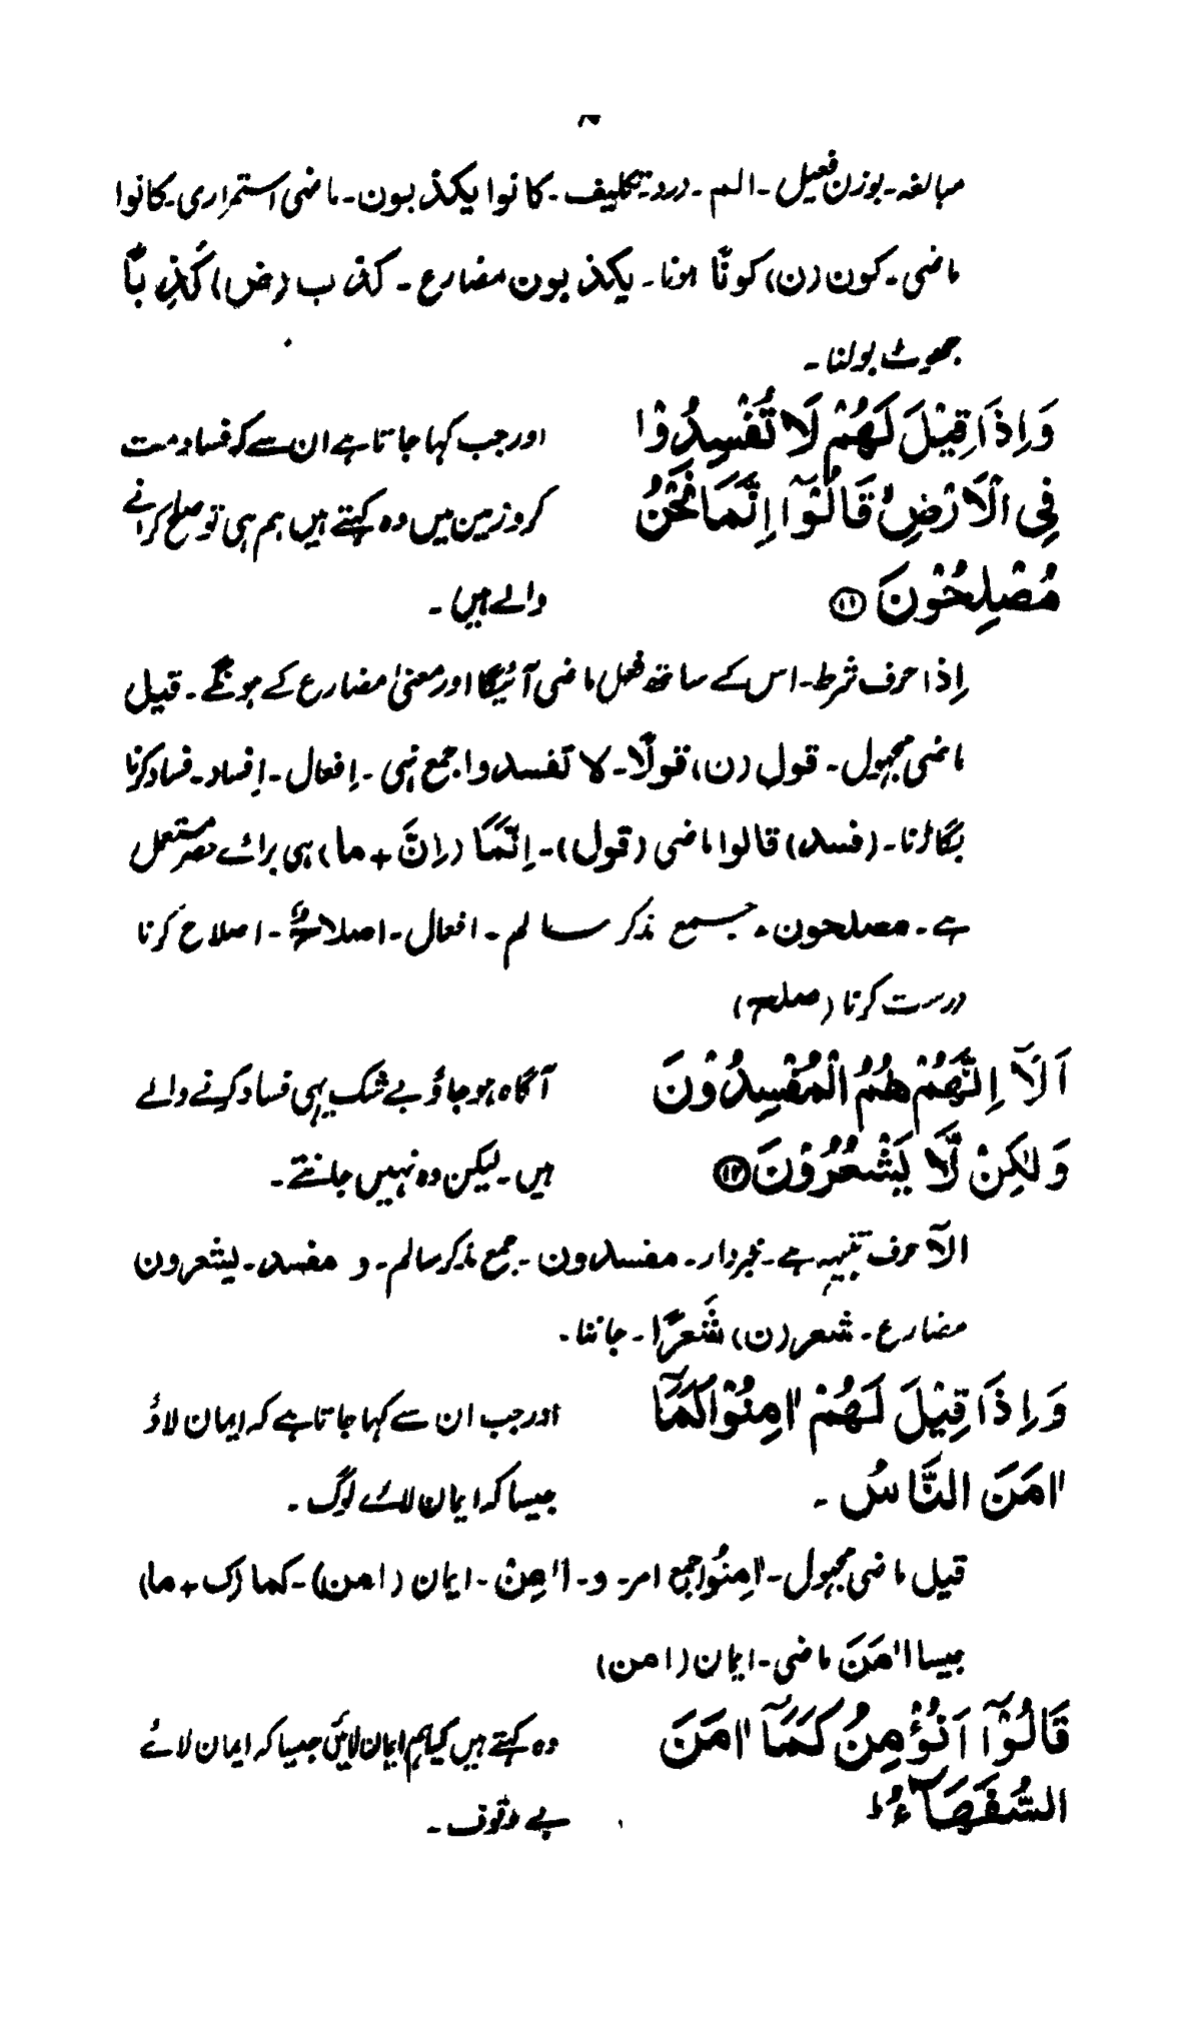 مبالغہ۔بوزن فعیل۔الم۔درد۔تکلیف۔کانوا یکذبون۔ماضی استمراری۔کانوا
ماضی۔کون (ن) کونًا ہونا۔یکذبون مضارع۔کذب (ض) کَذِبًا
جھوٹ بولنا۔
وَاِذَا قِيْلَ لَهُمْ لَا تُفْسِدُوْا
اور جب کہا جاتا ہے ان سے کہ فساد مت
فِى الْاَرْضِ ۙ قَالُوْٓا اِنَّمَا نَحْنُ
کرو زمین میں وہ کہتے ہیں ہم ہی تو صلح کرانے
مُصْلِحُوْنَ ⑪
والے ہیں۔
اِذا حرف شرط۔اس کے ساتھ فعل ماضی آئیگا اور معنیٰ مضارع کے ہونگے۔قیل
ماضی مجہول۔قول (ن) قولًا۔لا تفسدوا جمع نہی۔اِفعال۔اِفساد۔فساد کرنا
بگاڑنا۔(فسد) قالوا ماضی (قول)۔اِنَّمَا (اِنَّ + ما) ہی برائے حصر مستعمل
ہے۔مصلحون۔جمع مذکر سالم۔افعال۔اصلاح۔اصلاح کرنا
درست کرنا (صلح)
اَلَآ اِنَّهُمْ هُمُ الْمُفْسِدُوْنَ
آگاہ ہو جاؤ بے شک یہی فساد کرنے والے
وَلٰكِنْ لَّا يَشْعُرُوْنَ ⑫
ہیں۔لیکن وہ نہیں جانتے۔
الآ حرف تنبیہ ہے۔خبردار۔مفسدون۔جمع مذکر سالم۔و مفسد۔یشعرون
مضارع۔شعر (ن) شَعرًا۔جاننا۔
وَاِذَا قِيْلَ لَهُمْ اٰمِنُوْا كَمَآ
اور جب ان سے کہا جاتا ہے کہ ایمان لاؤ
اٰمَنَ النَّاسُ۔
جیسا کہ ایمان لائے لوگ۔
قیل ماضی مجہول۔اٰمِنُوا جمع امر۔و۔اٰمِنْ۔ایمان (امن)۔کما (ک + ما)
جیسا اٰمَنَ ماضی۔ایمان (امن)
قَالُوْٓا اَنُؤْمِنُ كَمَآ اٰمَنَ
وہ کہتے ہیں کیا ہم ایمان لائیں جیسا کہ ایمان لائے
السُّفَهَآءُ ؕ
بے وقوف۔